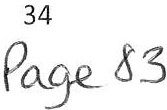 34
Page 83